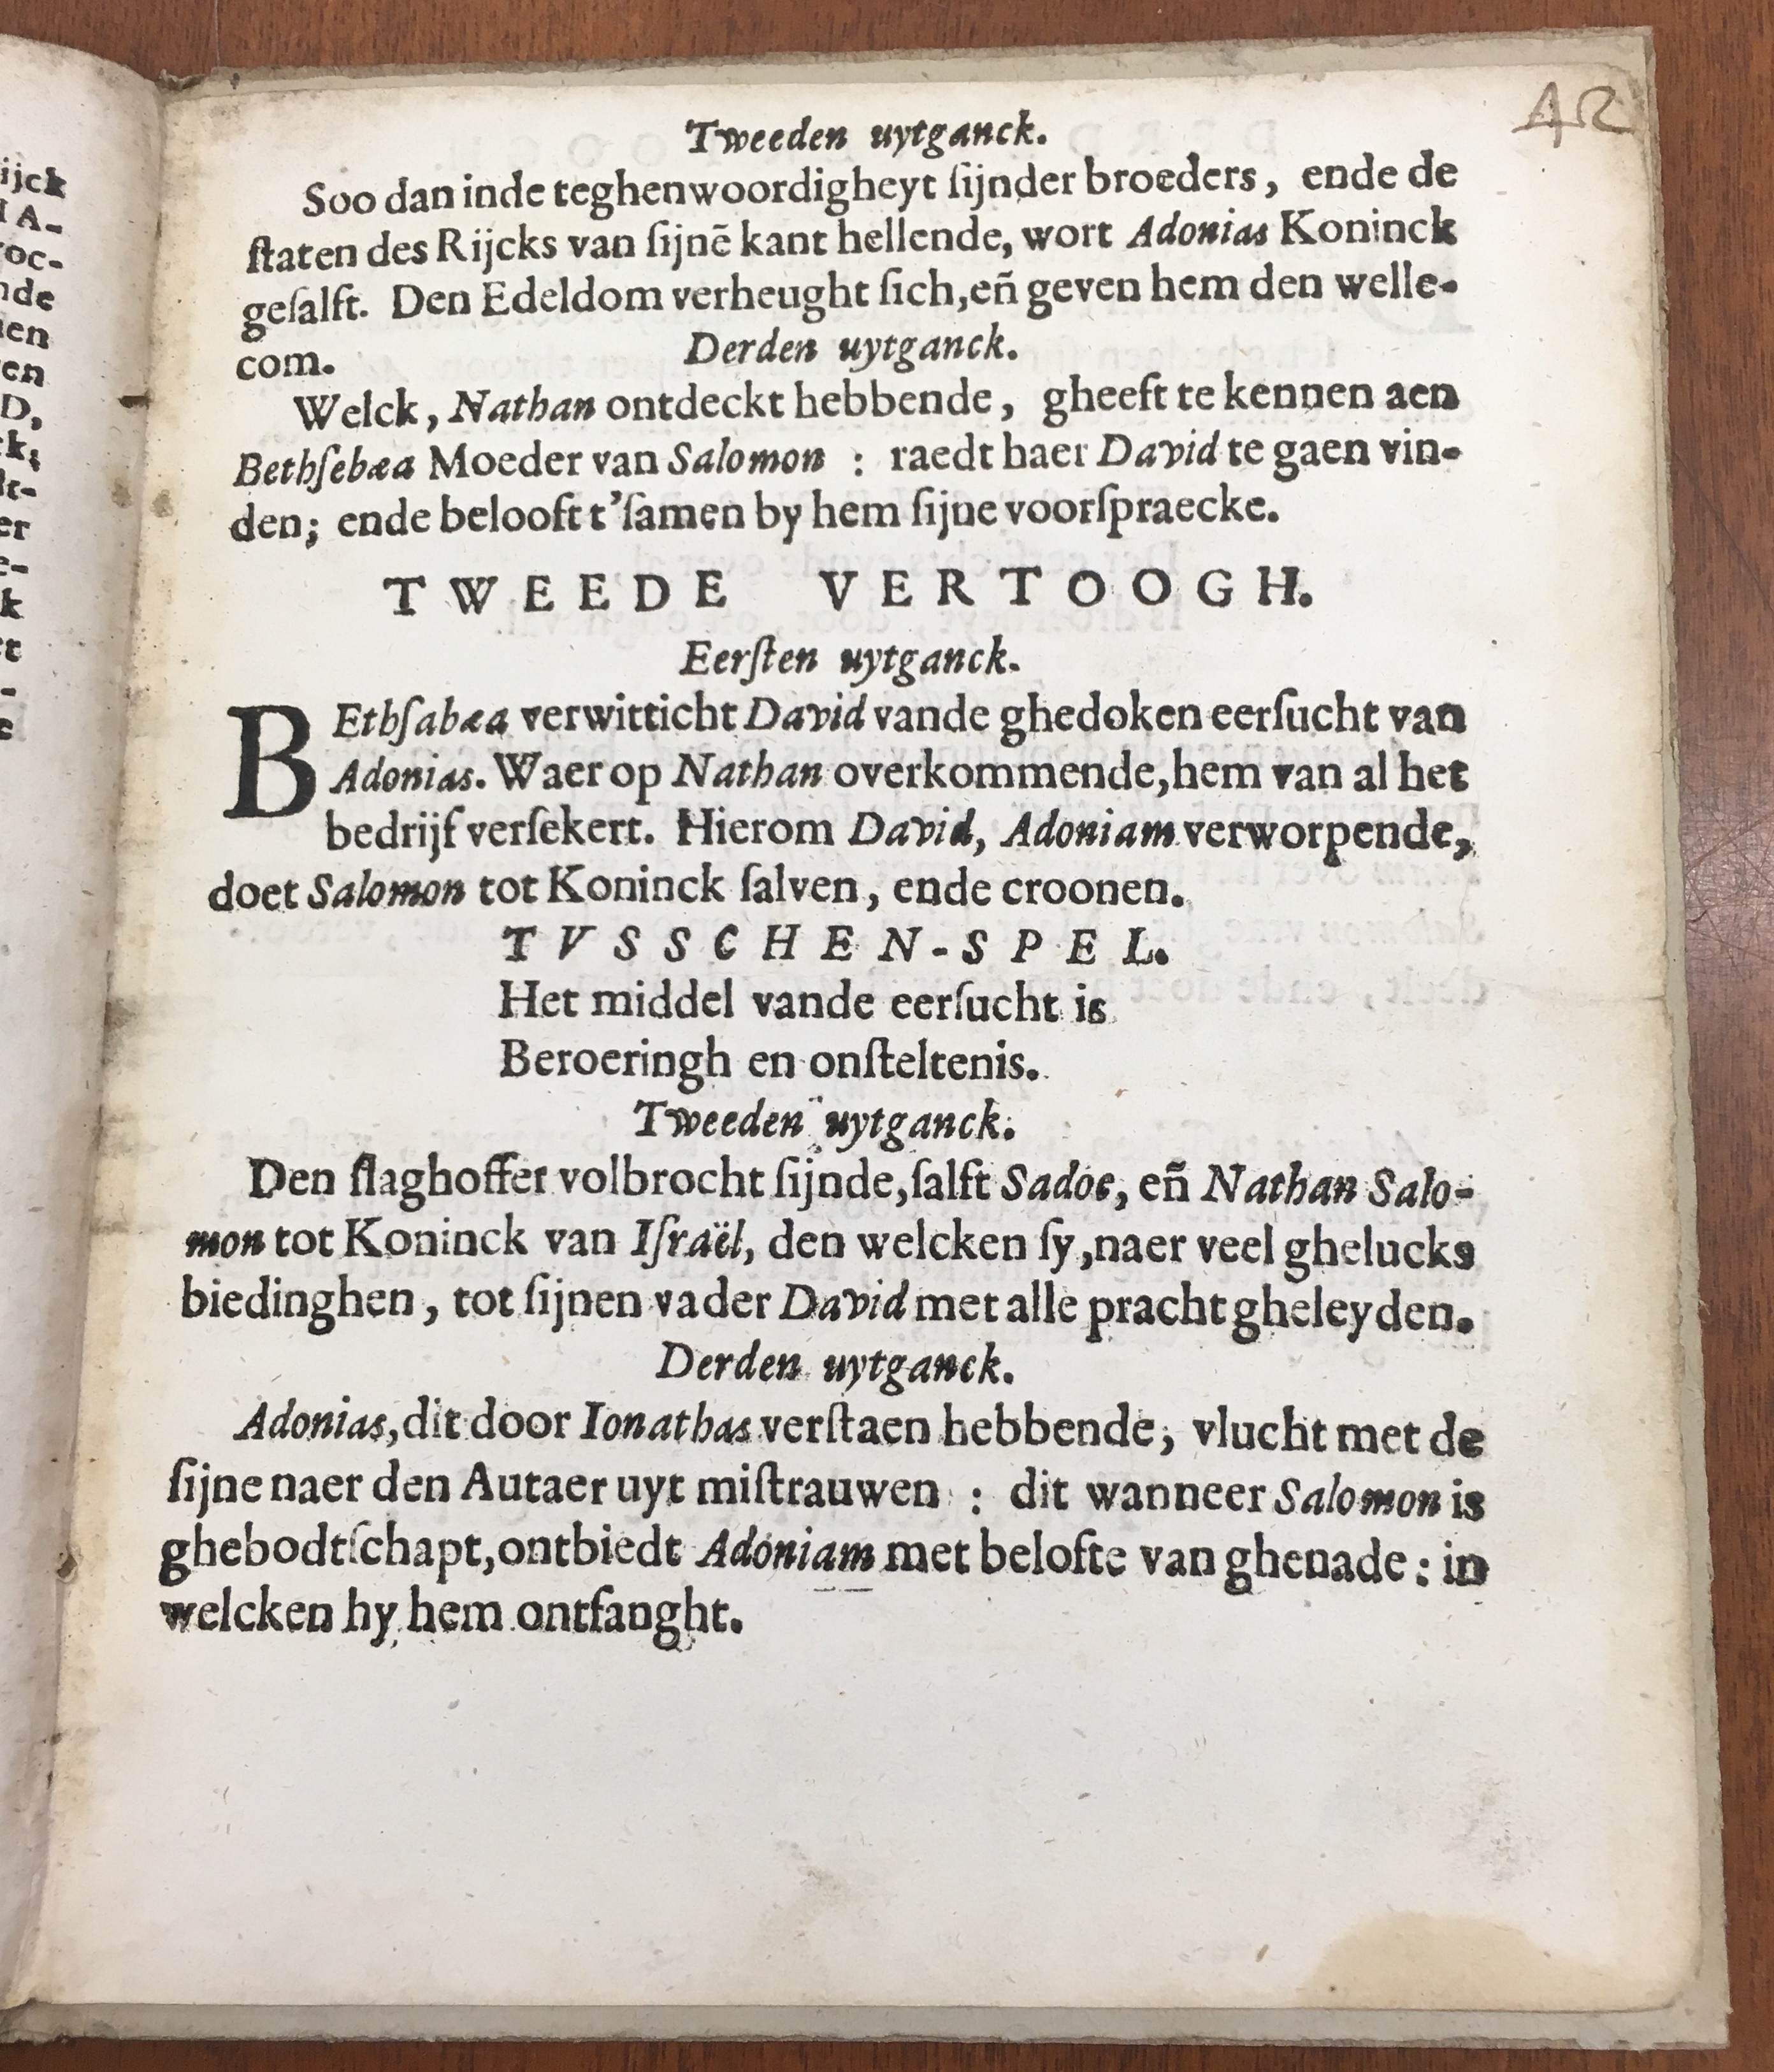 4R
Tweeden uytganck.
Soo dan inde teghenwoordigheyt ſijnder broeders, ende de
ſtaten des Rijcks van ſijnē kant hellende, wort Adonias Koninck
geſalft. Den Edeldom verheught ſich, en̄ geven hem den welle-
com.
Derden uytganck.
Welck, Nathan ontdeckt hebbende, gheeft te kennen aen
Bethſebæa Moeder van Salomon : raedt haer David te gaen vin-
den; ende belooft t'ſamen by hem ſijne voorſpraecke.
TWEEDE VERTOOGH.
Eerſten uytganck.
BEthſabæa verwitticht David vande ghedoken eerſucht van
Adonias. Waer op Nathan overkommende, hem van al het
bedrijf verſekert. Hierom David, Adoniam verworpende,
doet Salomon tot Koninck ſalven, ende croonen.
TVSSCHEN-SPEL.
Het middel vande eerſucht is
Beroeringh en onſteltenis.
Tweeden uytganck.
Den ſlaghoffer volbrocht ſijnde, ſalft Sadoc, en̄ Nathan Salo-
mon tot Koninck van Iſraël, den welcken ſy, naer veel ghelucks
biedinghen, tot ſijnen vader David met alle pracht gheleyden.
Derden uytganck.
Adonias, dit door Ionathas verſtaen hebbende, vlucht met de
ſijne naer den Autaer uyt miſtrauwen : dit wanneer Salomon is
ghebodtſchapt, ontbiedt Adoniam met belofte van ghenade : in
welcken hy hem ontfanght.
ijck
A-
oc-
nde
en
en
D,
er
k